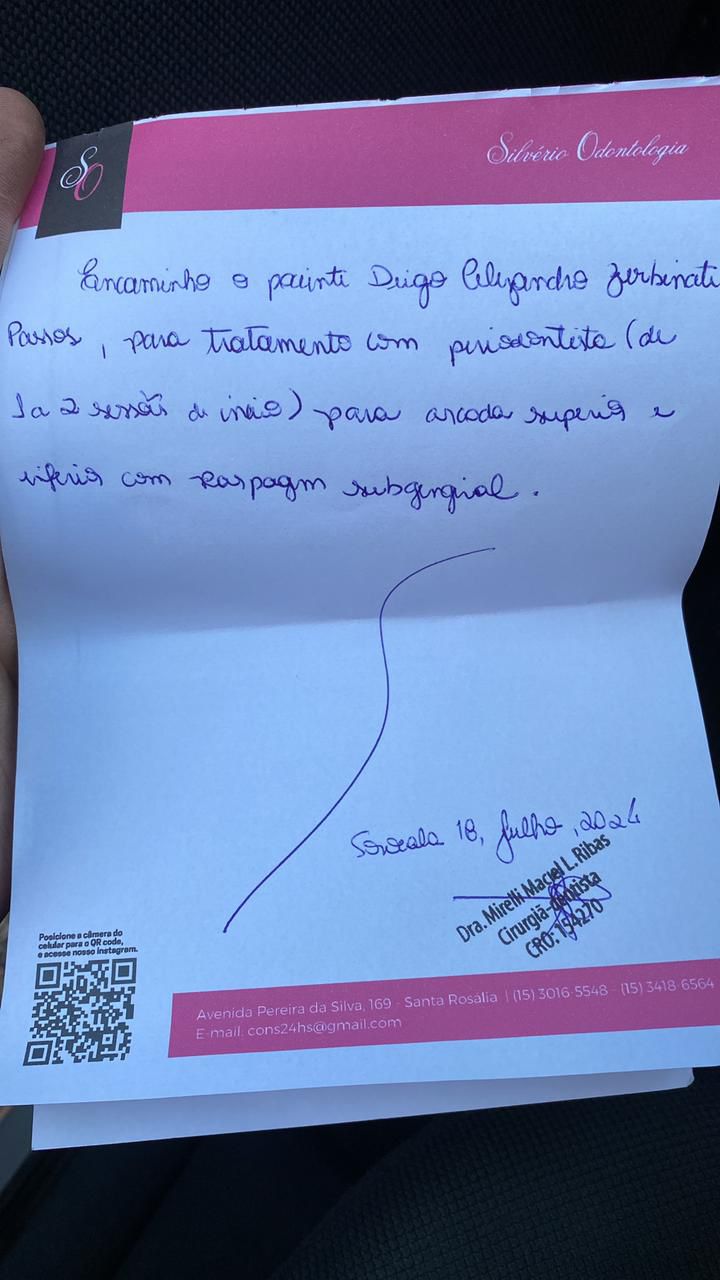 SO
Silvério Odontologia
Encaminho o paciente Diego Alexandre Zerbinati
Passos, para tratamento com periodontista (de
1 a 2 sessão de início) para arcada superior e
inferior com raspagem subgengival.
Sorocaba 18, Julho, 2024
Dra. Mirelli Maciel L. Ribas
Cirurgiã-dentista
CRO: 154270
Posicione a câmera do
celular para o QR code,
e acesse nosso instagram.
Avenida Pereira da Silva, 169 - Santa Rosália | (15) 3016-5548 - (15) 3418-6564
E-mail: cons24hs@gmail.com